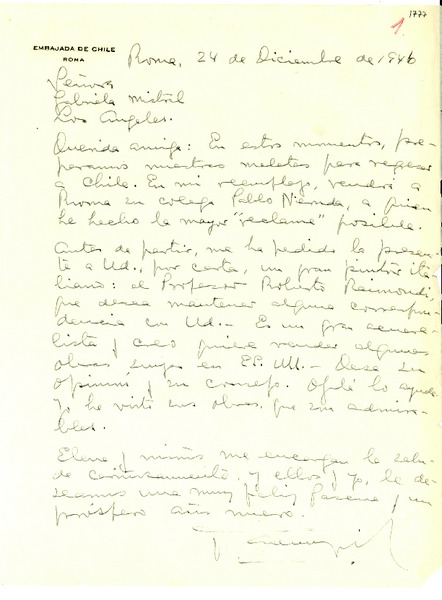 1777
1
EMBAJADA DE CHILE
ROMA
Roma, 24 de Diciembre de 1946
Señora
Gabriela Mistral
Los Angeles.
Querida amiga: En estos momentos, pre-
paramos nuestras maletas para regresar
a Chile. En mi reemplazo, vendrá a
Roma su colega Pablo Neruda, a quien
he hecho la mayor "reclame" posible.
Antes de partir, me ha pedido lo presen-
te a Ud., por carta, un gran pintor ita-
liano: el Profesor Roberto Raimondi,
que desea mantener alguna correspon-
dencia con Ud.- Es un gran acuare-
lista y creo quiere vender algunas
obras suyas en EE. UU.- Desea su
opinión y su consejo. Ojalá lo ayude
Yo he visto sus obras, que son admira-
bles.
Elena y niños me encargan la salu-
de cariñosamente, y ellos y yo, le de-
seamos una muy feliz Pascua y un
próspero año nuevo.